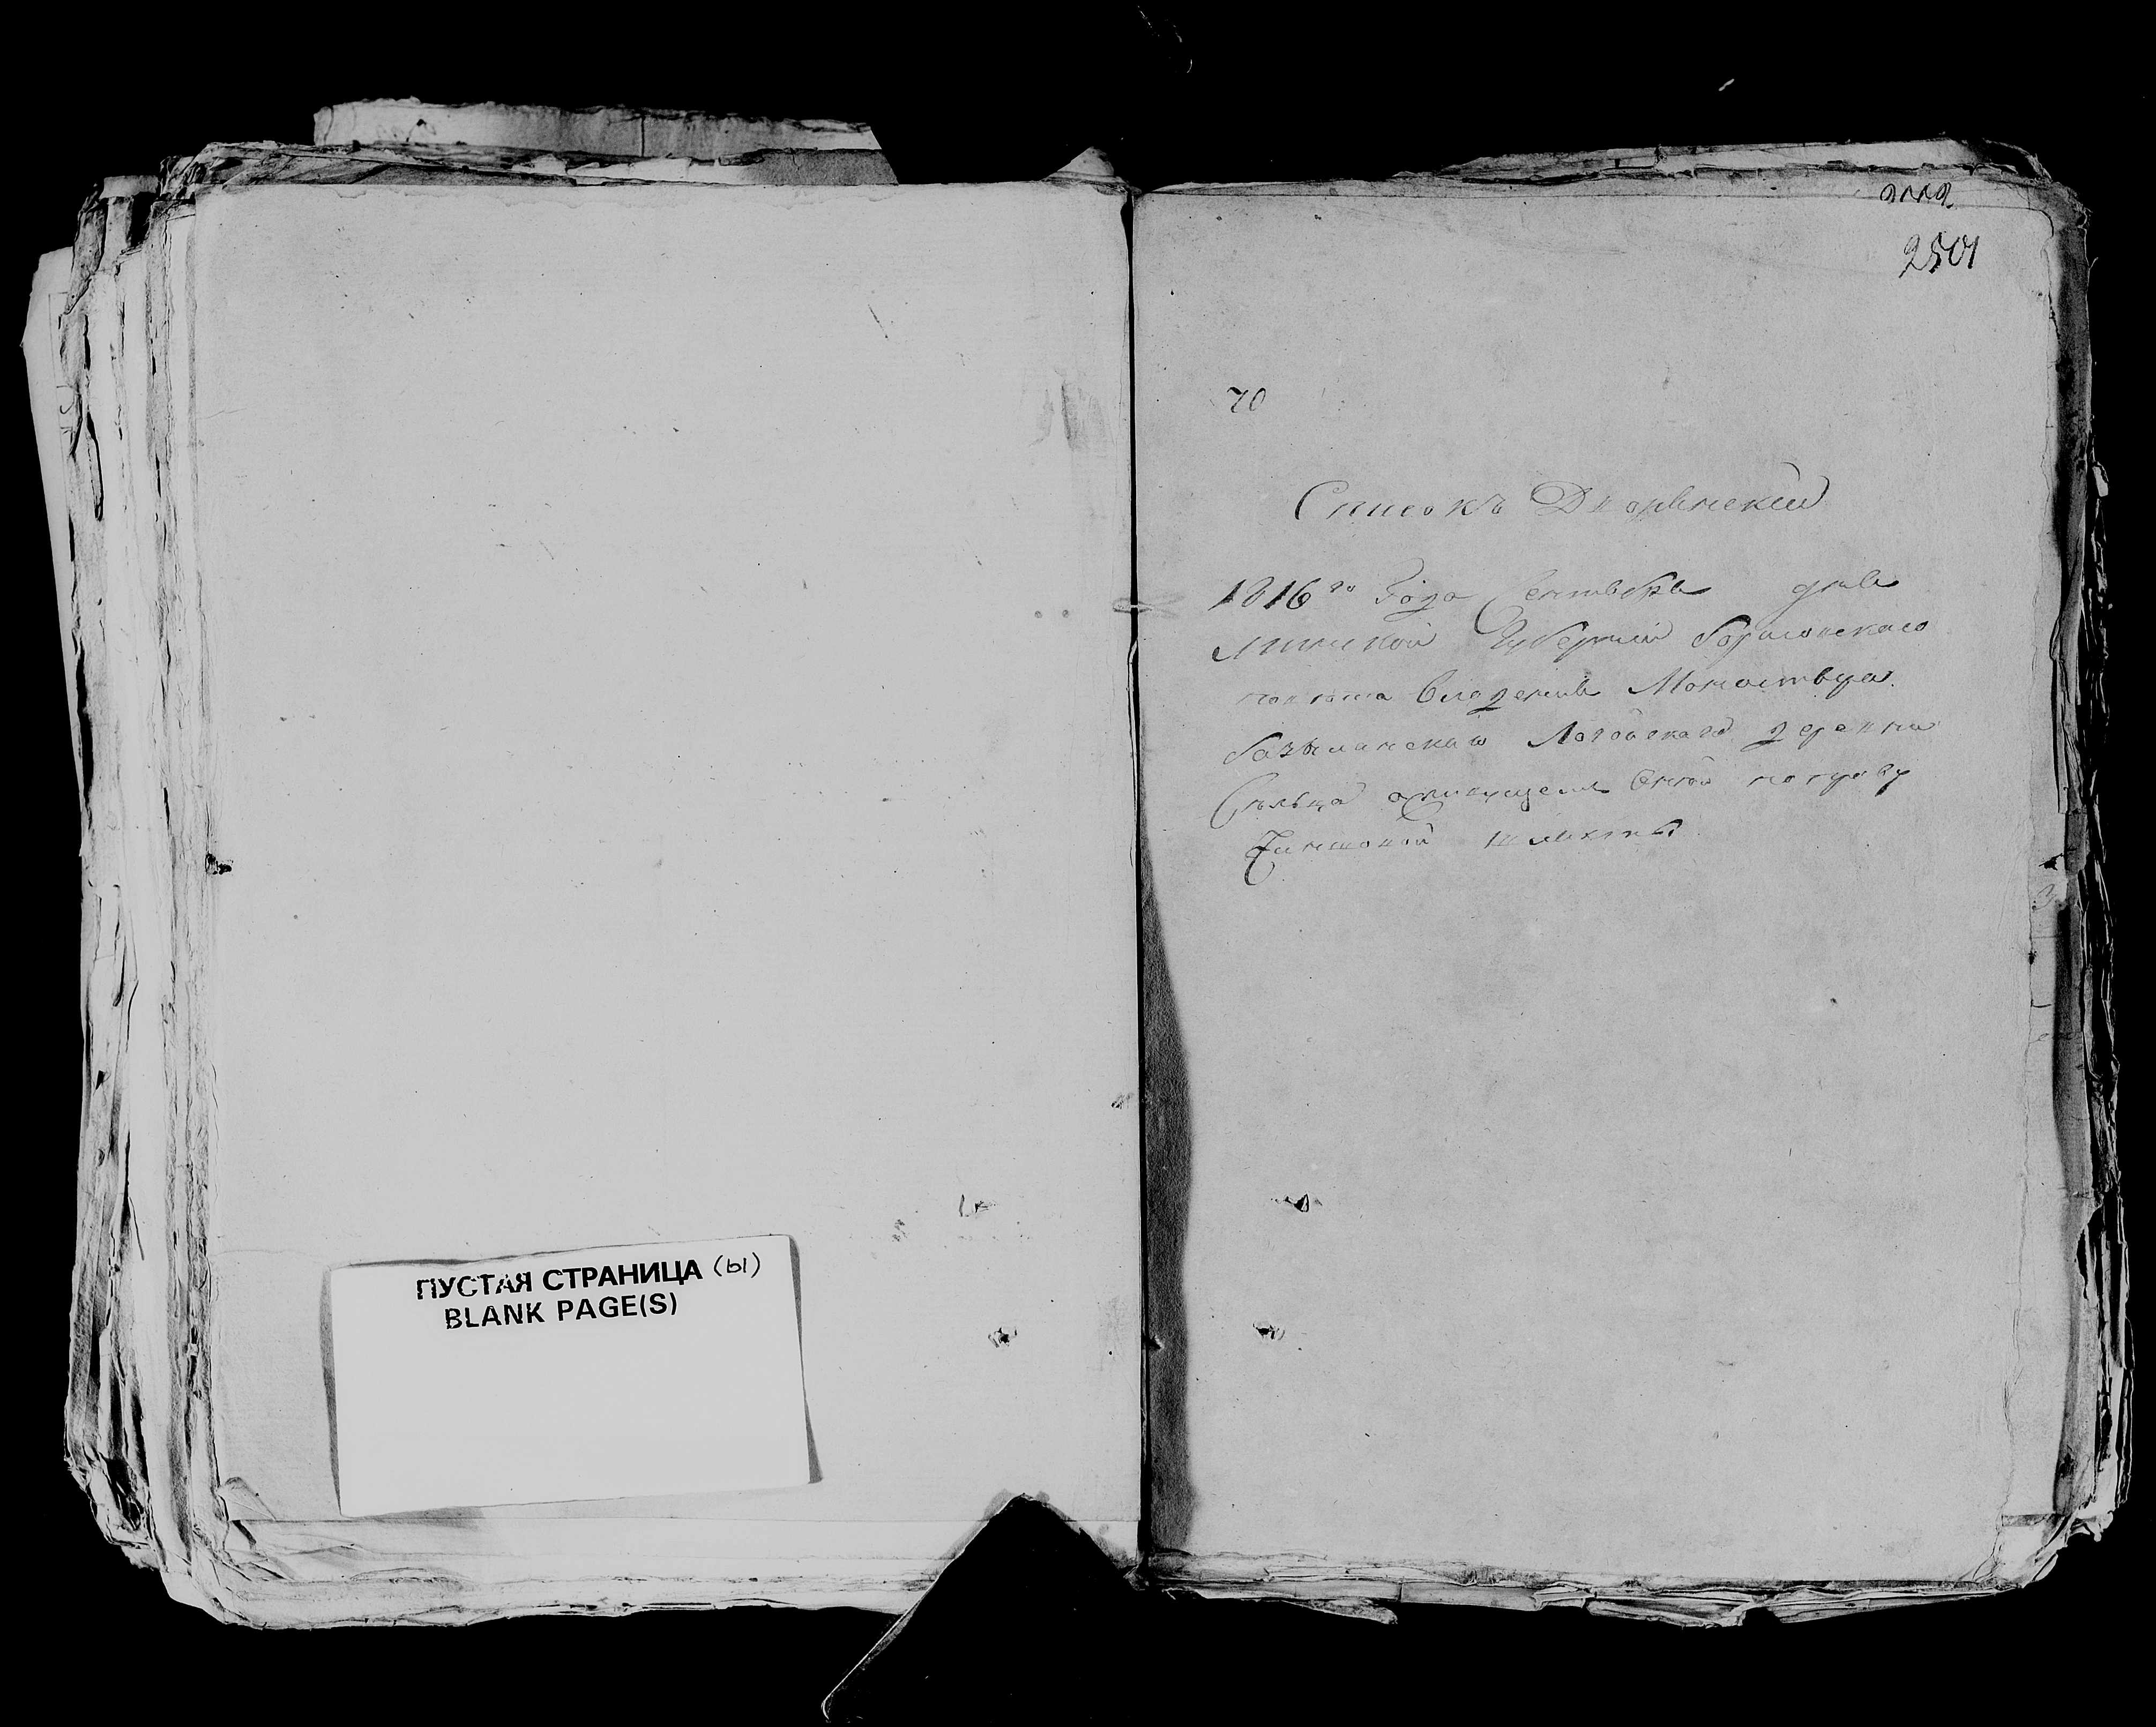 ПУСТАЯ СТРАНИЦА (ы)
BLANK PAGE(S)
2501
70
Списокъ Дворянскій
1816го Года Сентября дня
Минской Губерніи Борисовскаго
повѣта владенія Монастыря
базылянскаго Логойскаго деревни
Сельца о живущей
Чиншовой шляхты